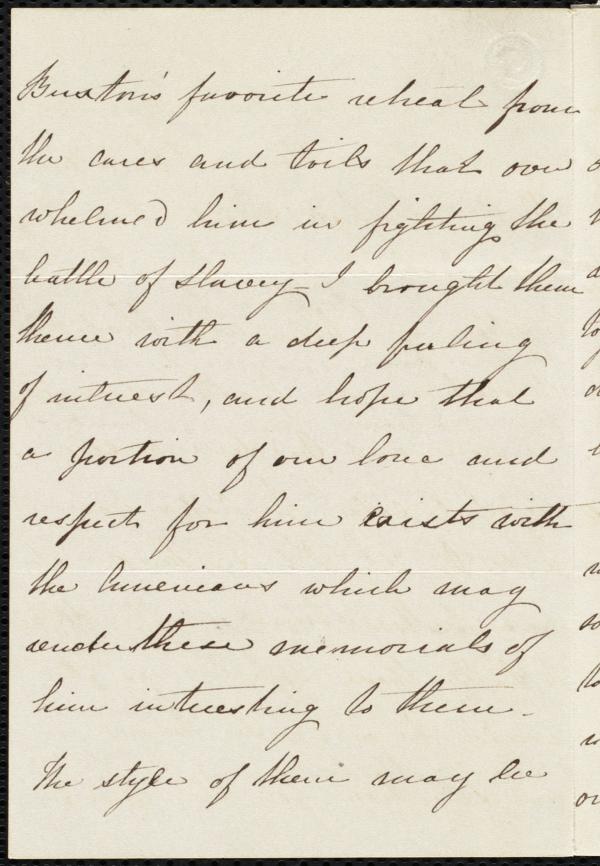 Buxton's favorite retreat from
the cares and toils that over
whelmed him in fighting the
battle of slavery - I brought them
thence with a deep feeling
of interest, and hope that
a portion of our love and
respect for him exists with
the Americans which may
render these memorials of
him interesting to them -
The style of them may be